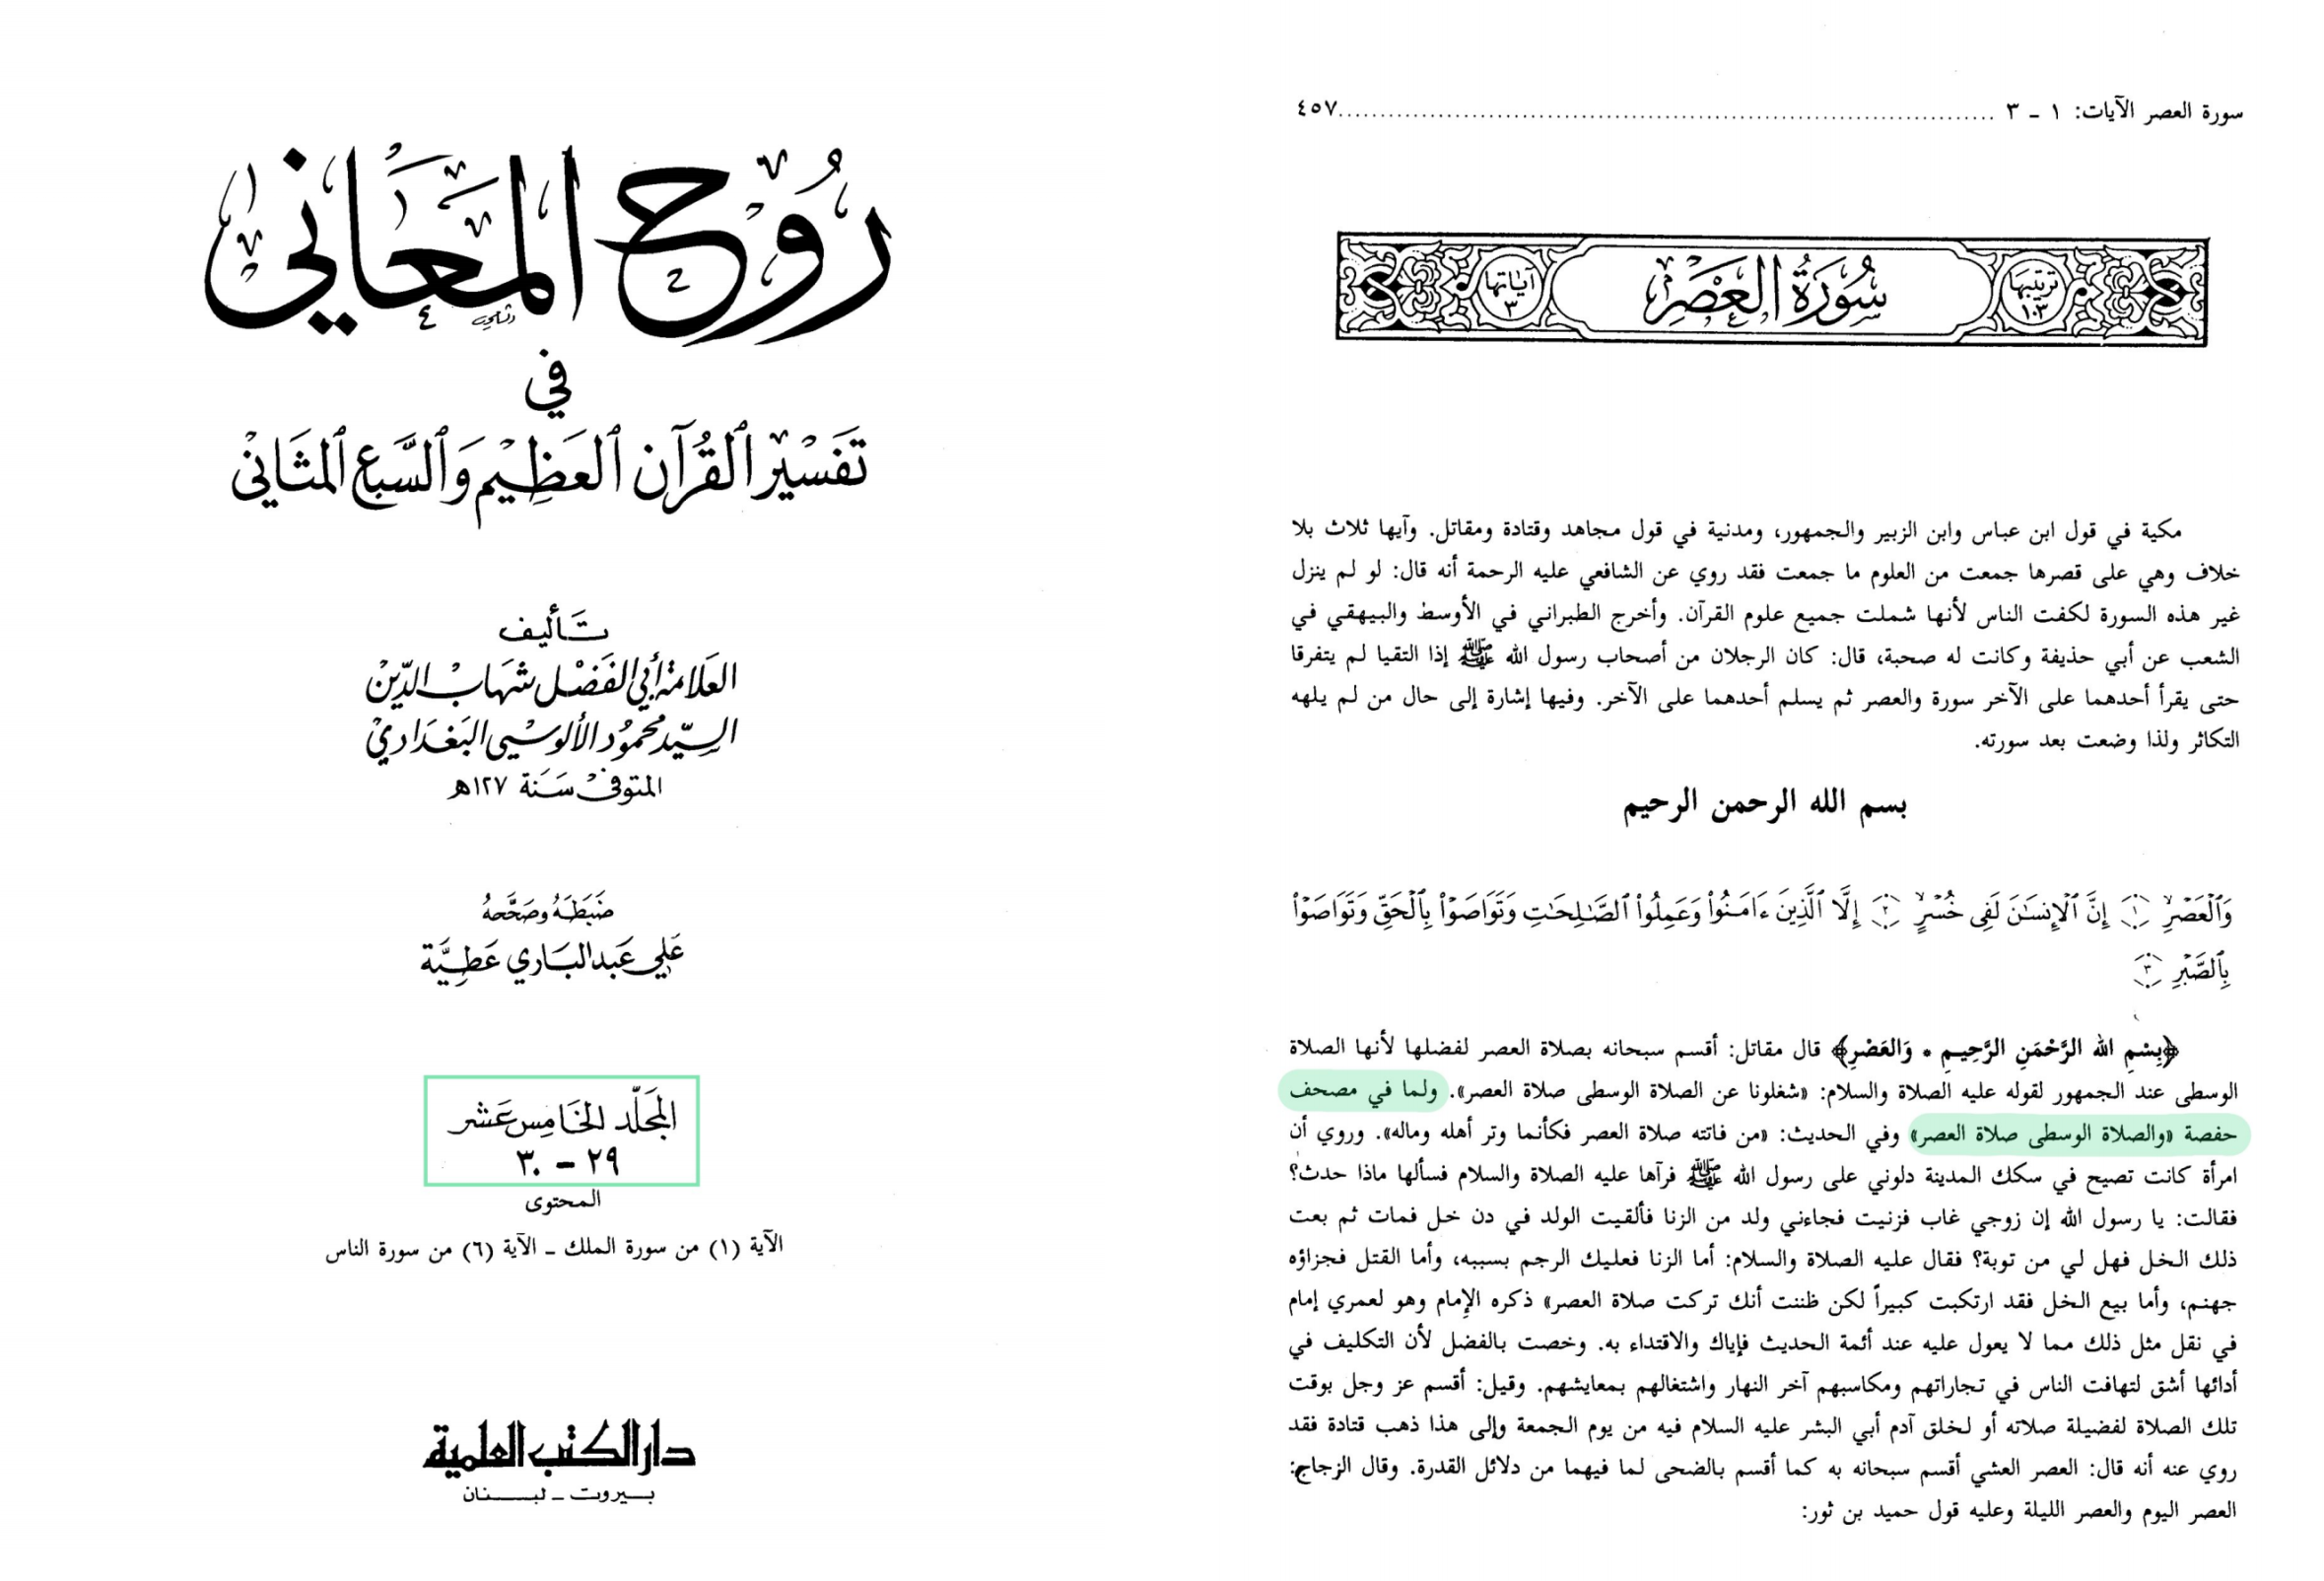 رُوحُ المَعَانِي
في
تَفْسِيْرِ ٱلْقُرْآنِ ٱلْعَظِيْمِ وَٱلسَّبْعِ ٱلْمَثَانِيْ
تَأليف
العَلامة أبي الفَضْل شهَاب الدِّين
السيّد محمُود الألوسيّ البَغدَادي
المتوفى سَنَة ١٢٧ه
ضَبَطَهُ وصَحَّحَهُ
عَلي عَبد البَاري عَطِيَّة
المجَلّد الخَامِس عَشر
٢٩ – ٣٠
المحتوى
الآية (١) من سورة الملك ـ الآية (٦) من سورة الناس
دار الكتب العلمية
بيروت ـ لبنان
سورة العصر الآيات: ١ ـ ٣ ............................ ٤٥٧
ترتيبها ١٠٣ سُورَةُ العَصْرِ آياتها ٣
مكية في قول ابن عباس وابن الزبير والجمهور، ومدنية في قول مجاهد وقتادة ومقاتل. وآيها ثلاث بلا
خلاف وهي على قصرها جمعت من العلوم ما جمعت فقد روي عن الشافعي عليه الرحمة أنه قال: لو لم ينزل
غير هذه السورة لكفت الناس لأنها شملت جميع علوم القرآن. وأخرج الطبراني في الأوسط والبيهقي في
الشعب عن أبي حذيفة وكانت له صحبة، قال: كان الرجلان من أصحاب رسول الله ﷺ إذا التقيا لم يتفرقا
حتى يقرأ أحدهما على الآخر سورة والعصر ثم يسلم أحدهما على الآخر. وفيها إشارة إلى حال من لم يلهه
التكاثر ولذا وضعت بعد سورته.
بسم الله الرحمن الرحيم
وَٱلْعَصْرِ ۝١ إِنَّ ٱلْإِنسَٰنَ لَفِى خُسْرٍ ۝٢ إِلَّا ٱلَّذِينَ ءَامَنُوا۟ وَعَمِلُوا۟ ٱلصَّٰلِحَٰتِ وَتَوَاصَوْا۟ بِٱلْحَقِّ وَتَوَاصَوْا۟
بِٱلصَّبْرِ ۝٣
﴿بِسْمِ الله الرَّحْمَنِ الرَّحِيمِ * وَالعَصْرِ﴾ قال مقاتل: أقسم سبحانه بصلاة العصر لفضلها لأنها الصلاة
الوسطى عند الجمهور لقوله عليه الصلاة والسلام: «شغلونا عن الصلاة الوسطى صلاة العصر». ولما في مصحف
حفصة «والصلاة الوسطى صلاة العصر» وفي الحديث: «من فاتته صلاة العصر فكأنما وتر أهله وماله». وروي أن
امرأة كانت تصيح في سكك المدينة دلوني على رسول الله ﷺ فرآها عليه الصلاة والسلام فسألها ماذا حدث؟
فقالت: يا رسول الله إن زوجي غاب فزنيت فجاءني ولد من الزنا فألقيت الولد في دن خل فمات ثم بعت
ذلك الخل فهل لي من توبة؟ فقال عليه الصلاة والسلام: أما الزنا فعليك الرجم بسببه، وأما القتل فجزاؤه
جهنم، وأما بيع الخل فقد ارتكبت كبيراً لكن ظننت أنك تركت صلاة العصر» ذكره الإمام وهو لعمري إمام
في نقل مثل ذلك مما لا يعول عليه عند أئمة الحديث فإياك والاقتداء به. وخصت بالفضل لأن التكليف في
أدائها أشق لتهافت الناس في تجاراتهم ومكاسبهم آخر النهار واشتغالهم بمعايشهم. وقيل: أقسم عز وجل بوقت
تلك الصلاة لفضيلة صلاته أو لخلق آدم أبي البشر عليه السلام فيه من يوم الجمعة وإلى هذا ذهب قتادة فقد
روي عنه أنه قال: العصر العشي أقسم سبحانه به كما أقسم بالضحى لما فيهما من دلائل القدرة. وقال الزجاج:
العصر اليوم والعصر الليلة وعليه قول حميد بن ثور: